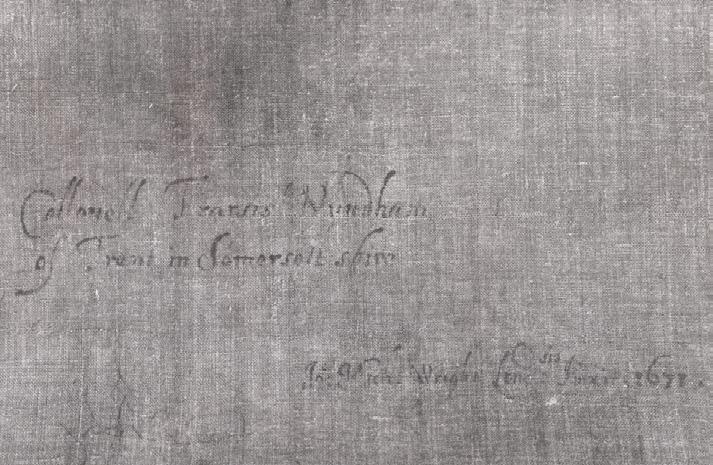 Collonell Francis Wyndham
of Trent in Somersett shire
Jo: Mich: Wright Lond: sis pinxit. 1671.